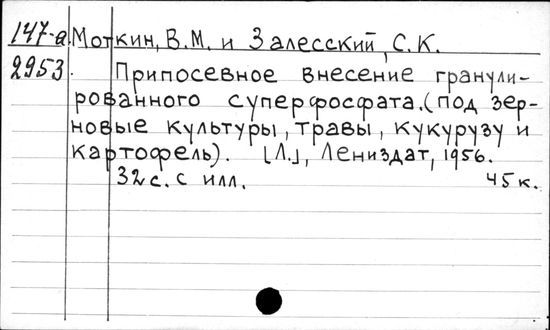 147-а Моткин, В.М. и Залесский, С.К.
2953 Припосевное внесение гранули-
рованного суперфосфата. (под зер-
новые культуры, травы, кукурузу и
картофель). [Л.], Лениздат, 1956.
32 с. с илл. 45 к.